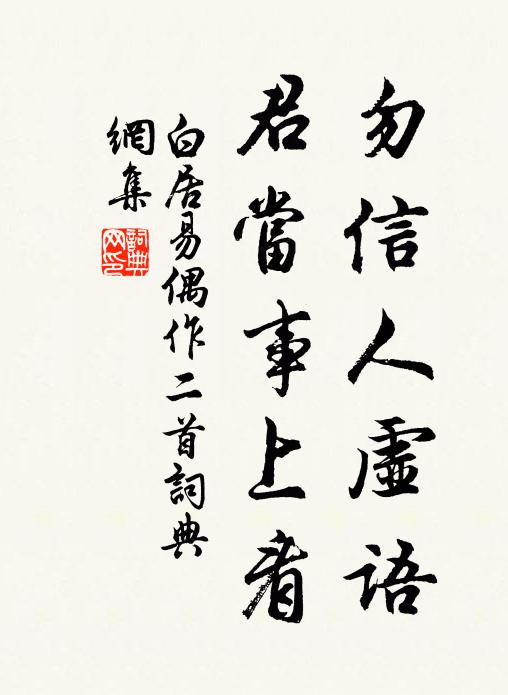 勿信人虛語
君當事上看
白居易偶作二首詞典
網集
詞典
网印